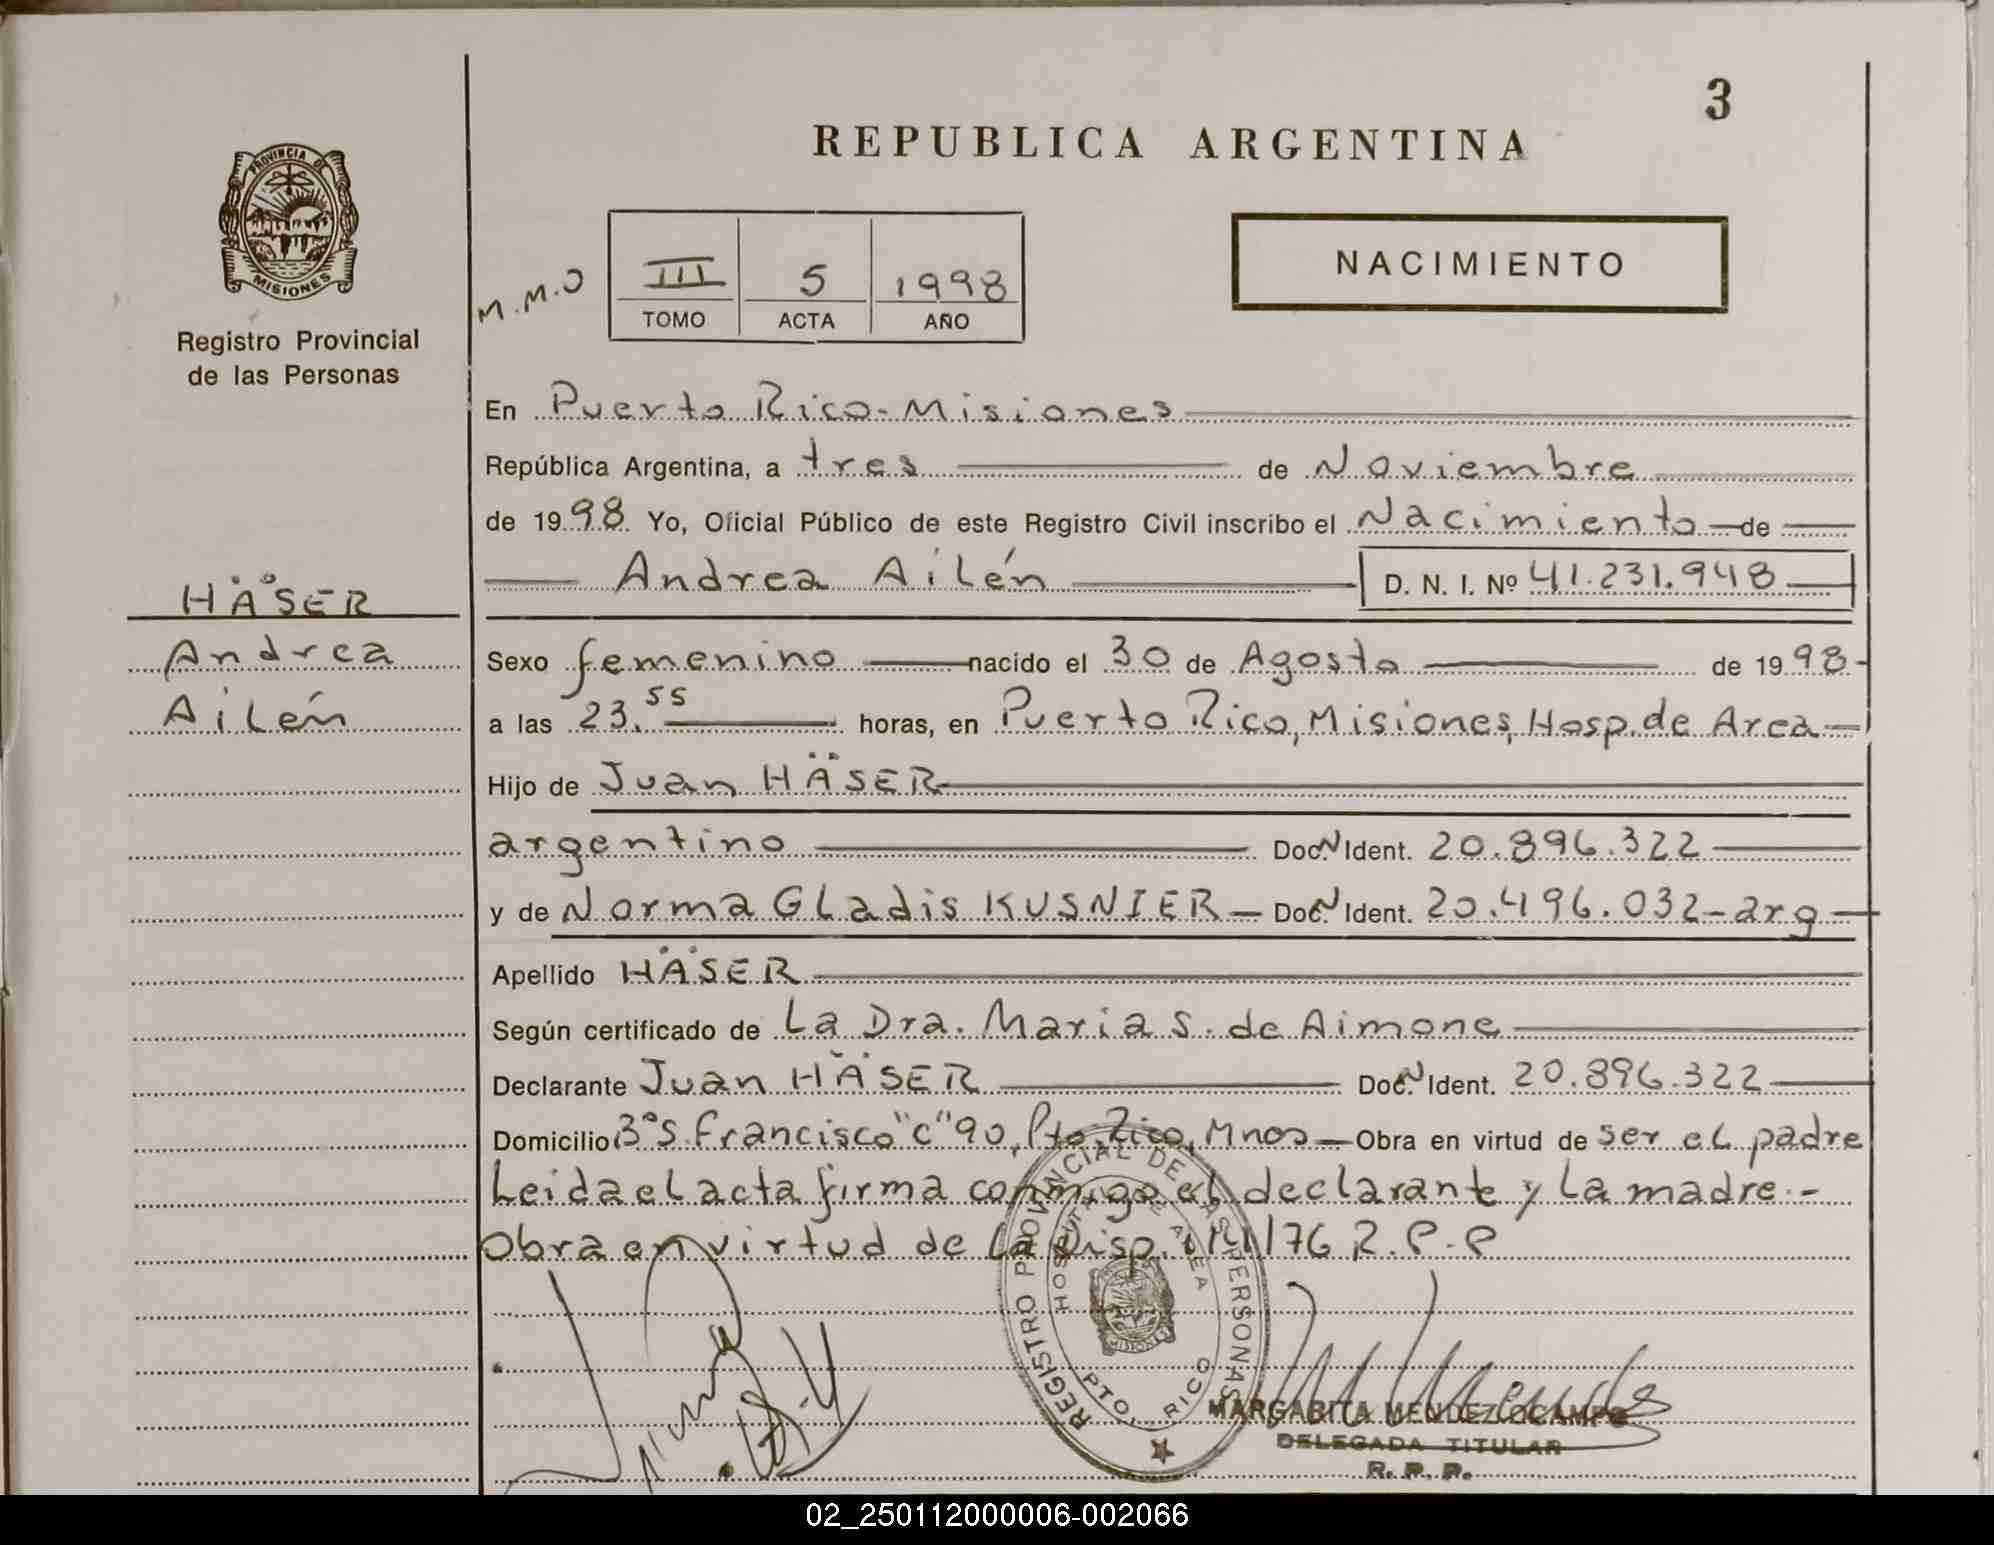 3
REPUBLICA ARGENTINA
PROVINCIA DE
MISIONES
Registro Provincial
de las Personas
M.M.O
III 5 1998
TOMO ACTA AÑO
NACIMIENTO
En Puerto Rico-Misiones
República Argentina, a tres de Noviembre
de 1998 Yo, Oficial Público de este Registro Civil inscribo el Nacimiento de
Andrea Ailén D. N. I. Nº 41.231.948
HÄSER
Andrea
Ailén
Sexo femenino nacido el 30 de Agosto de 1998
a las 23.55 horas, en Puerto Rico, Misiones, Hosp. de Area
Hijo de Juan HÄSER
argentino Doc. N Ident. 20.896.322
y de Norma Gladis KUSNIER Doc. N Ident. 20.496.032-arg
Apellido HÄSER
Según certificado de La Dra. Maria S. de Aimone
Declarante Juan HÄSER Doc. N Ident. 20.896.322
Domicilio 3°S. Francisco "C" 90, Pto. Rico, Mnes Obra en virtud de ser el padre
Leida el acta firma conmigo el declarante y la madre.-
Obra en virtud de la Disp. /76 R.P.P
REGISTRO PROVINCIAL DE LAS PERSONAS
HOSPITAL DE AREA
MISIONES
PTO. RICO
MARGARITA MENDEZ OCAMPO
DELEGADA TITULAR
R. P. P.
02_250112000006-002066